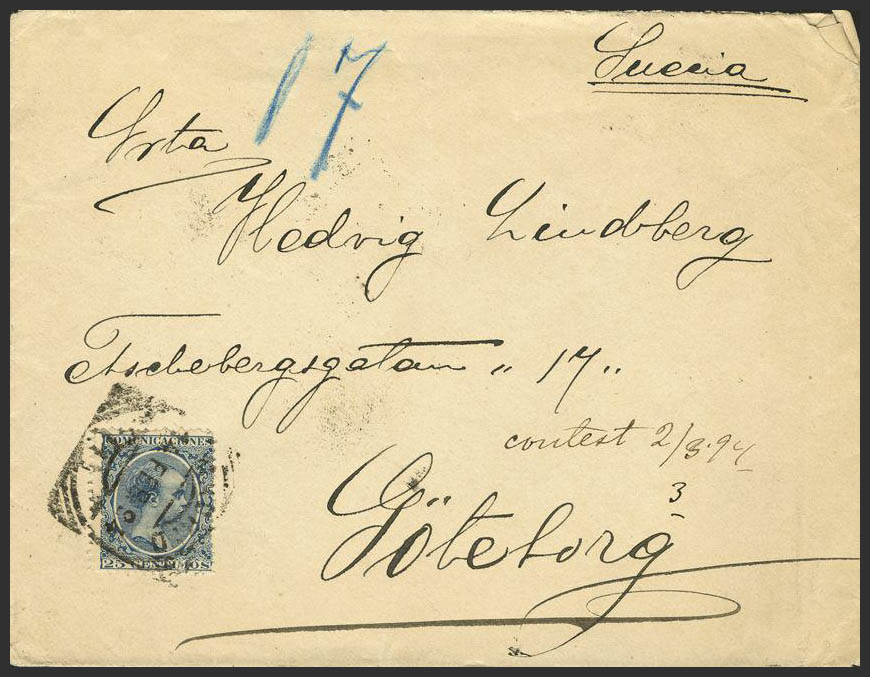 Suecia
17
Srta
Hedvig Lindberg
Aschebergsgatan " 17 "
contest 2/3.94
3
Göteborg
COMUNICACIONES
25 CENTIMOS